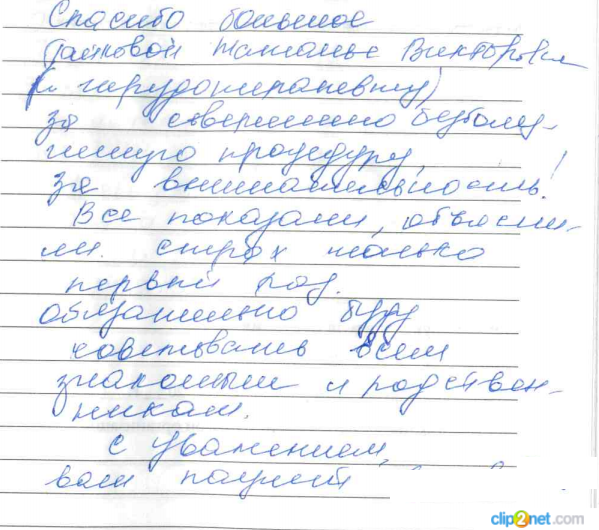 Спасибо большое
Татьяне Викторовне
(гирудотерапевту)
за совершенно безболез-
ненную процедуру,
за внимательность!
Все показали, объясни-
ли. страх только
первый раз.
обязательно буду
советовать всем
знакомым и родствен-
никам.
с уважением,
ваш пациент
clip2net.com